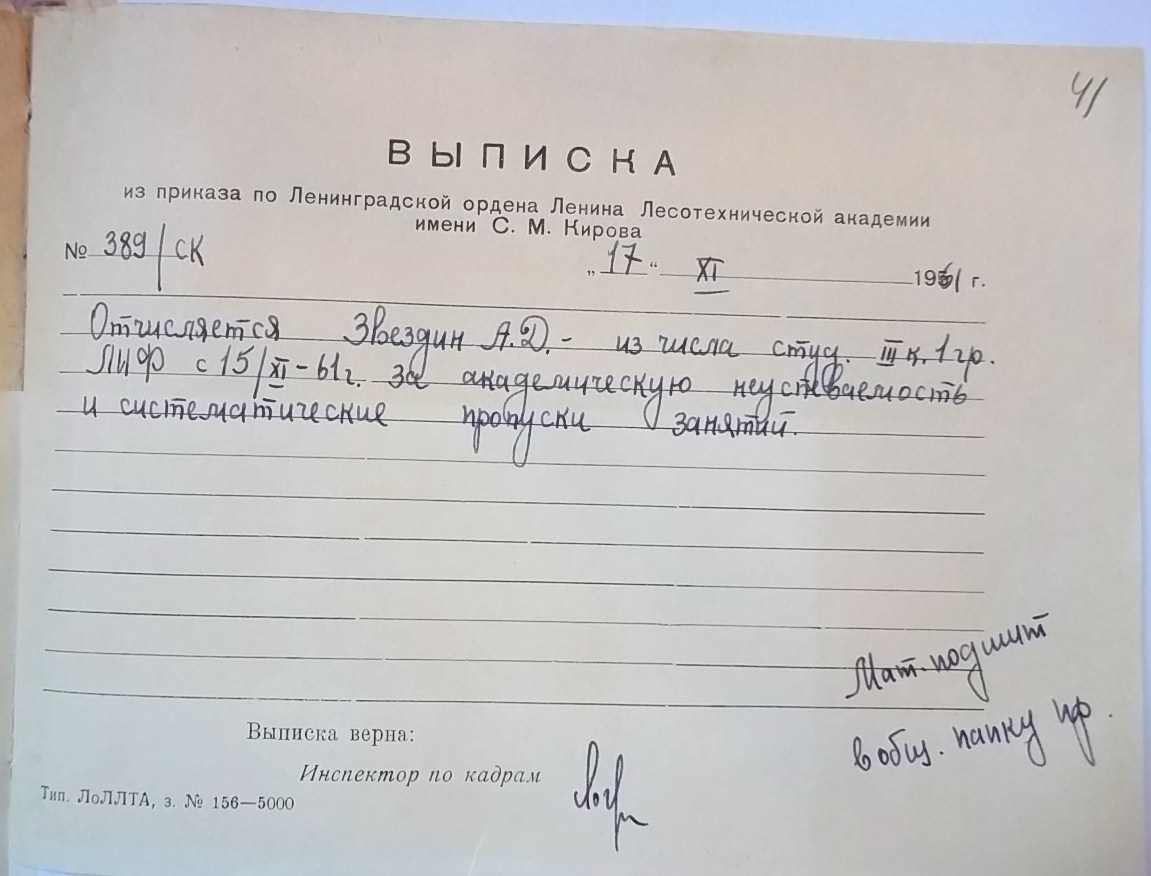 41
ВЫПИСКА
из приказа по Ленинградской ордена Ленина Лесотехнической академии
имени С. М. Кирова
№ 389/СК „17“ XI 1961 г.
Отчисляется Звездин А.Д. - из числа студ. III к. 1 гр.
ЛИФ с 15/XI-61г. за академическую неуспеваемость
и систематические пропуски занятий.
Мат. подшит
в общ. папку
Выписка верна:
Инспектор по кадрам
Тип. ЛоЛЛТА, з. № 156—5000